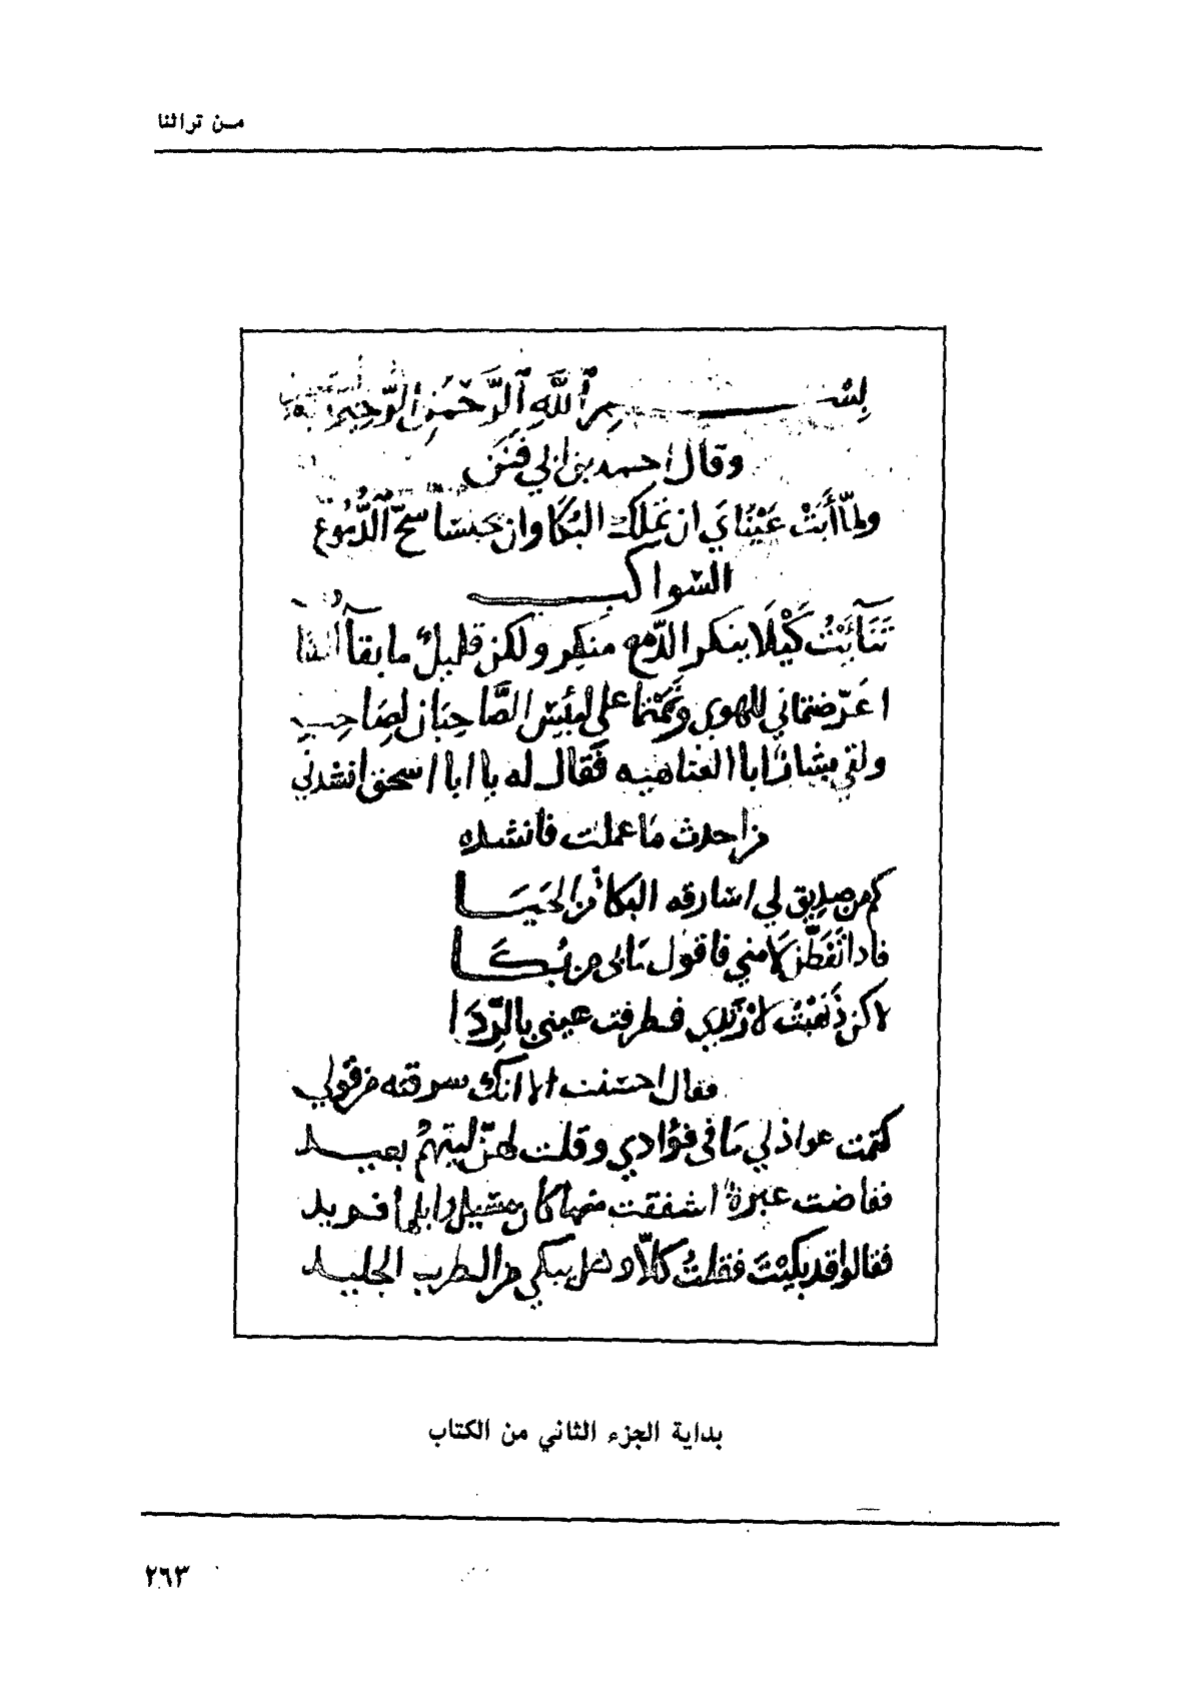 من تراثنا
بسم الله الرحمن الرحيم
وقال احمد بن ابي فنن
ولمّا أَبَتْ عَيْنَايَ ان تملك البُكَا وان تحبسا سحّ الدُّمُوع
السّواكب
تَثَآءَبْتُ كَيْلَا ينكر الدّمع منكر ولكن قليلٌ ما بقآءُ
اعَرّضتماني للهوى ونَمَمْتُما علي لبئس الصّاحبان لصاحب
ولقي بشارٌ ابا العتاهيه فقال له يا ابا اسحق انشدني
من احدث مَا عملت فانشده
كم من صديق لي اسارقه البكا من الحَيَــا
فاذا تَفَطّن لامني فاقول مَا بي من بُكَــا
لاكن ذَهَبْتُ لارْتَدي فطرفت عيني بالرِّدَا
فقال احسنت الا انك سرقته من قولي
كتمت عواذلي مَا في فؤادي وقلت لهنّ ليتهمُ بعيــد
ففاضت عبرةٌ اشفقت منها كان مسيل وابلها فريد
فقالوا قد بكيْتَ فقلتُ كلّا وهل يبكي من الطرب الجليــد
بداية الجزء الثاني من الكتاب
٢٦٣